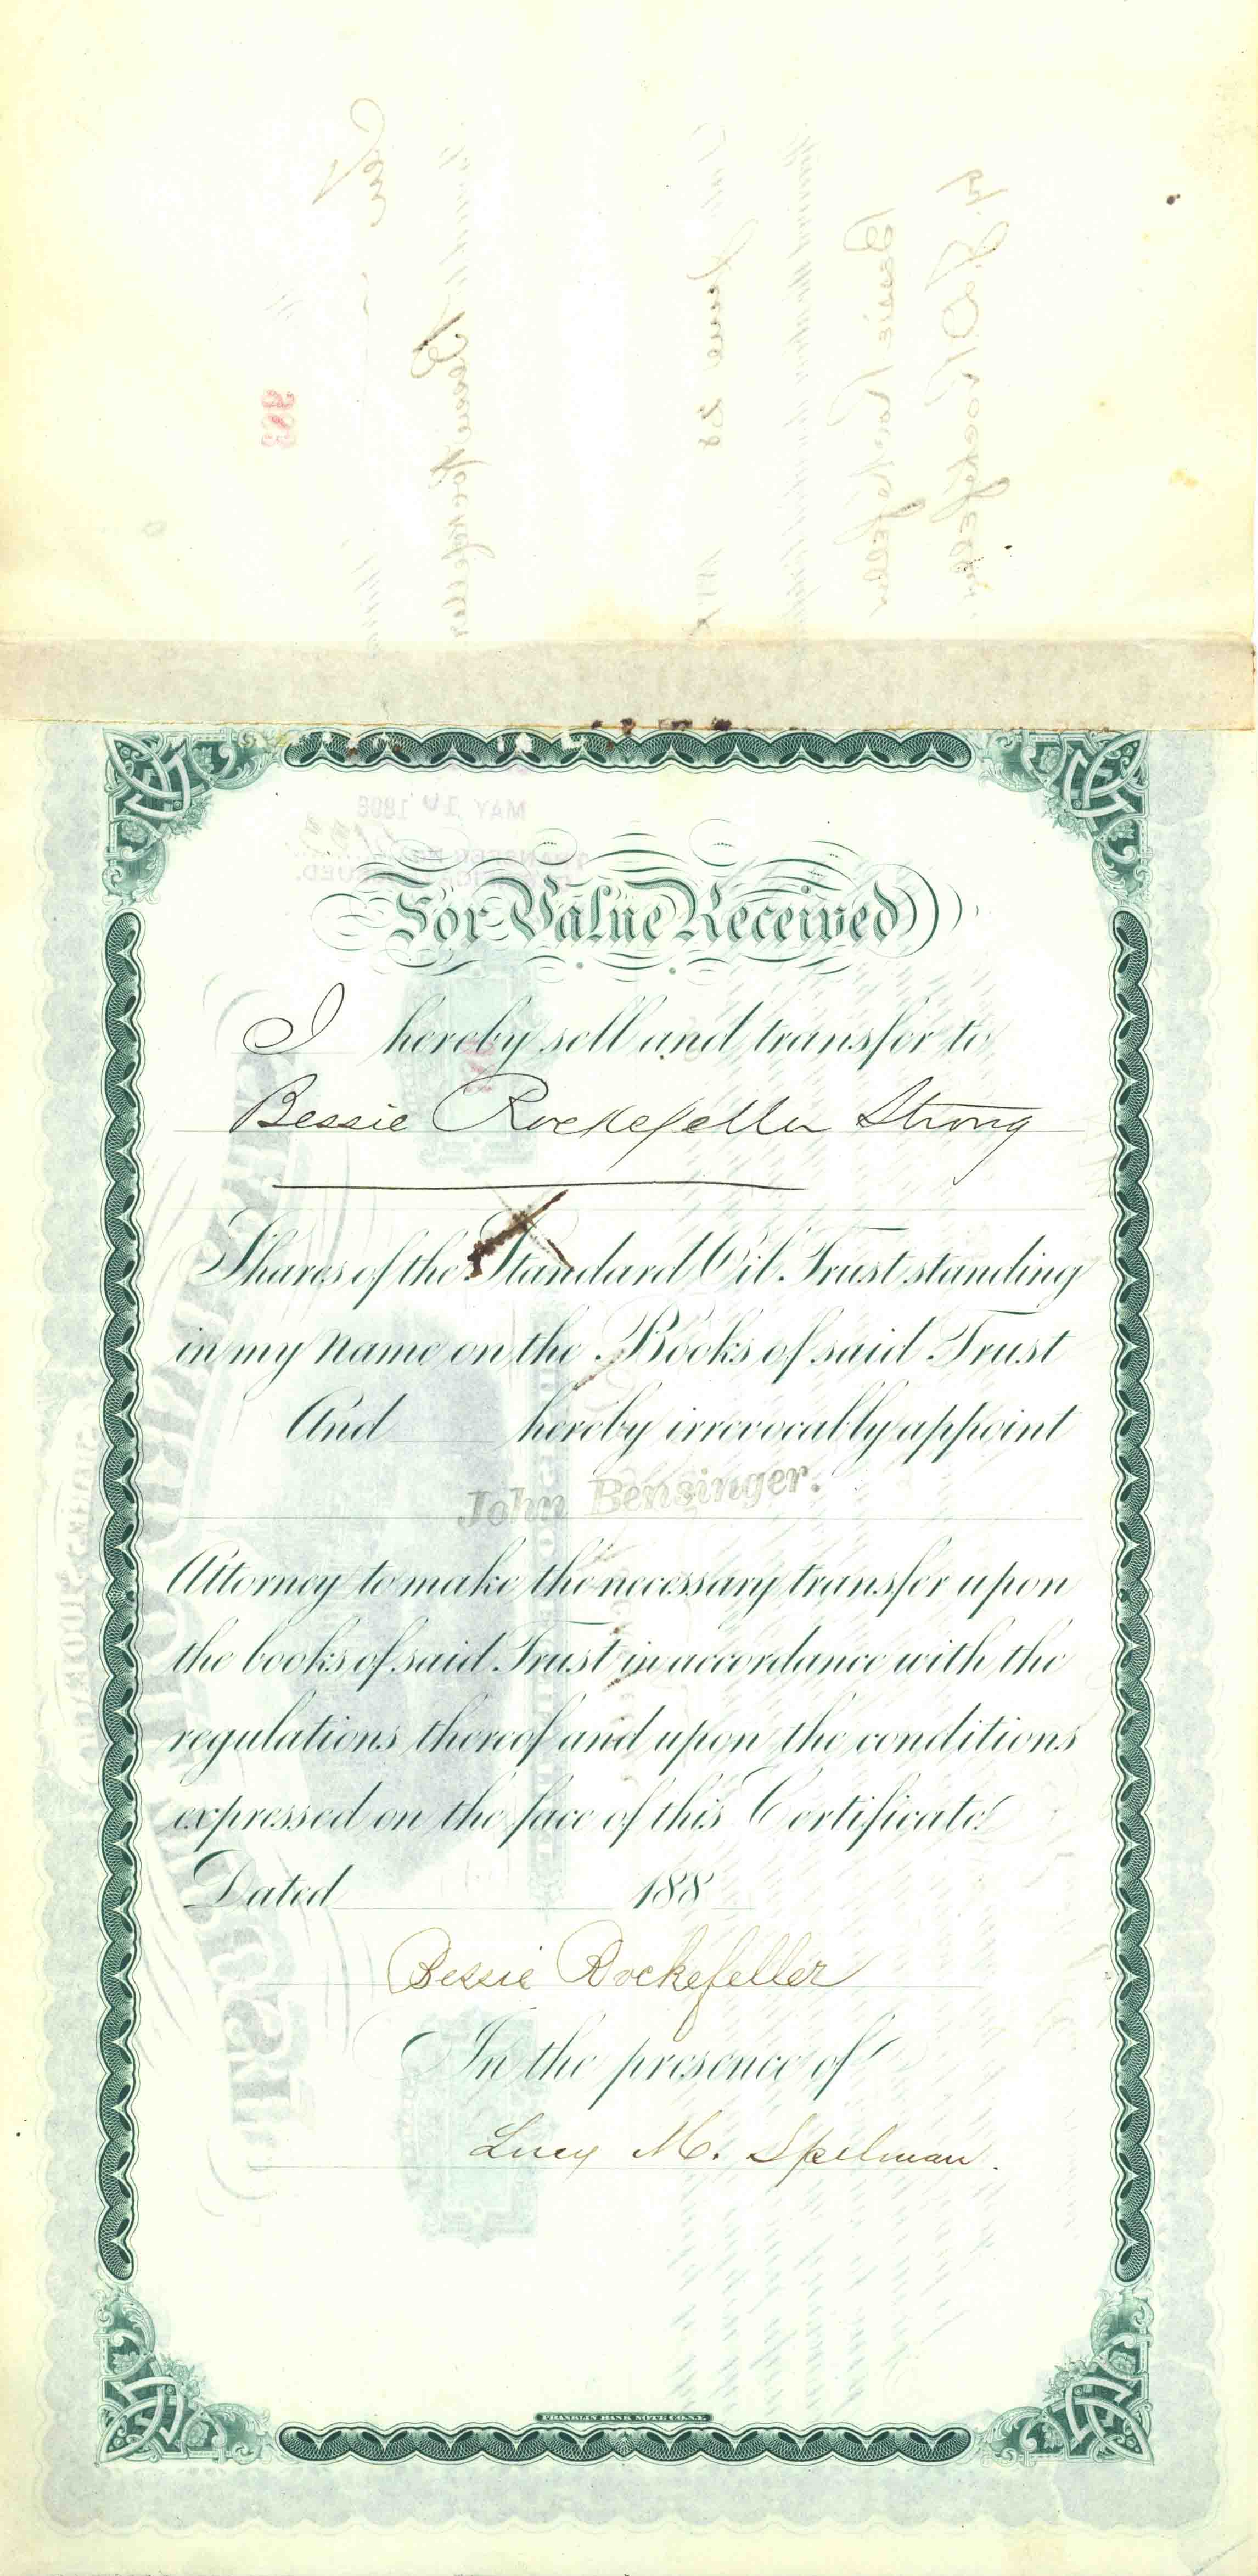 For Value Received
I hereby sell and transfer to
Bessie Rockefeller Strong
Shares of the Standard Oil Trust standing
in my name on the Books of said Trust
And hereby irrevocably appoint
John Bensinger.
Attorney to make the necessary transfer upon
the books of said Trust in accordance with the
regulations thereof and upon the conditions
expressed on the face of this Certificate.
Dated 188
Bessie Rockefeller
In the presence of
Lucy M. Spelman.
FRANKLIN BANK NOTE CO. N.Y.